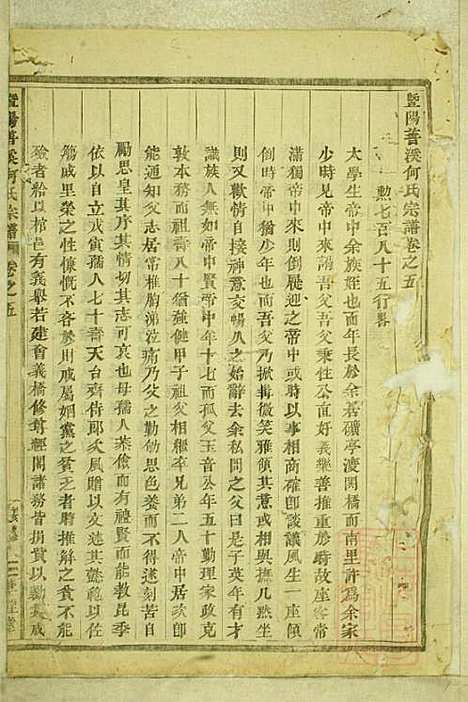 暨陽善溪何氏宗譜卷之五
勲七百八十五行畧
大學生帝中余族姪也而年長於余善礦亭渡関橋而南里許爲余家
少時見帝中來謁吾父吾父秉性公直好義樂善推重於時故座客常
滿獨帝中來則倒屣迎之帝中或時以事相商確卽談議風生一座傾
倒時帝中猶少年也而吾父乃掀梅微笑雅領其意或相與撫几然坐
則又歡情自接神意交暢久之始辭去余私問之父曰是子英年有才
識族人無如帝中賢帝中年十七而孤父玉音公年五十勤理家政克
敦本務祖齊八十猶強健甲子祖繼卒兄弟二人帝中居次卽
能通知大志居常椎胸涕泣痛乃父之勤勉思色養而不得遂刻苦自
勵思皇其序其志可哀也母孺人葉儉而有禮賢而能教昆季
依以自立或寅孺人七十書天台齊侍郎次風贈以文述其懿範以佐
觴戚里榮之性慷慨不吝施與則戚屬姻黨之貧乏者時推解以貸不能
殮者給以棺邑有義舉若建會義橋修尊經閣諸務皆捐貲以襄其成
暨陽善溪何氏宗譜
卷之五